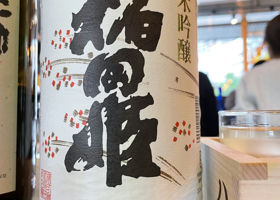 米吟醸
稲田姫